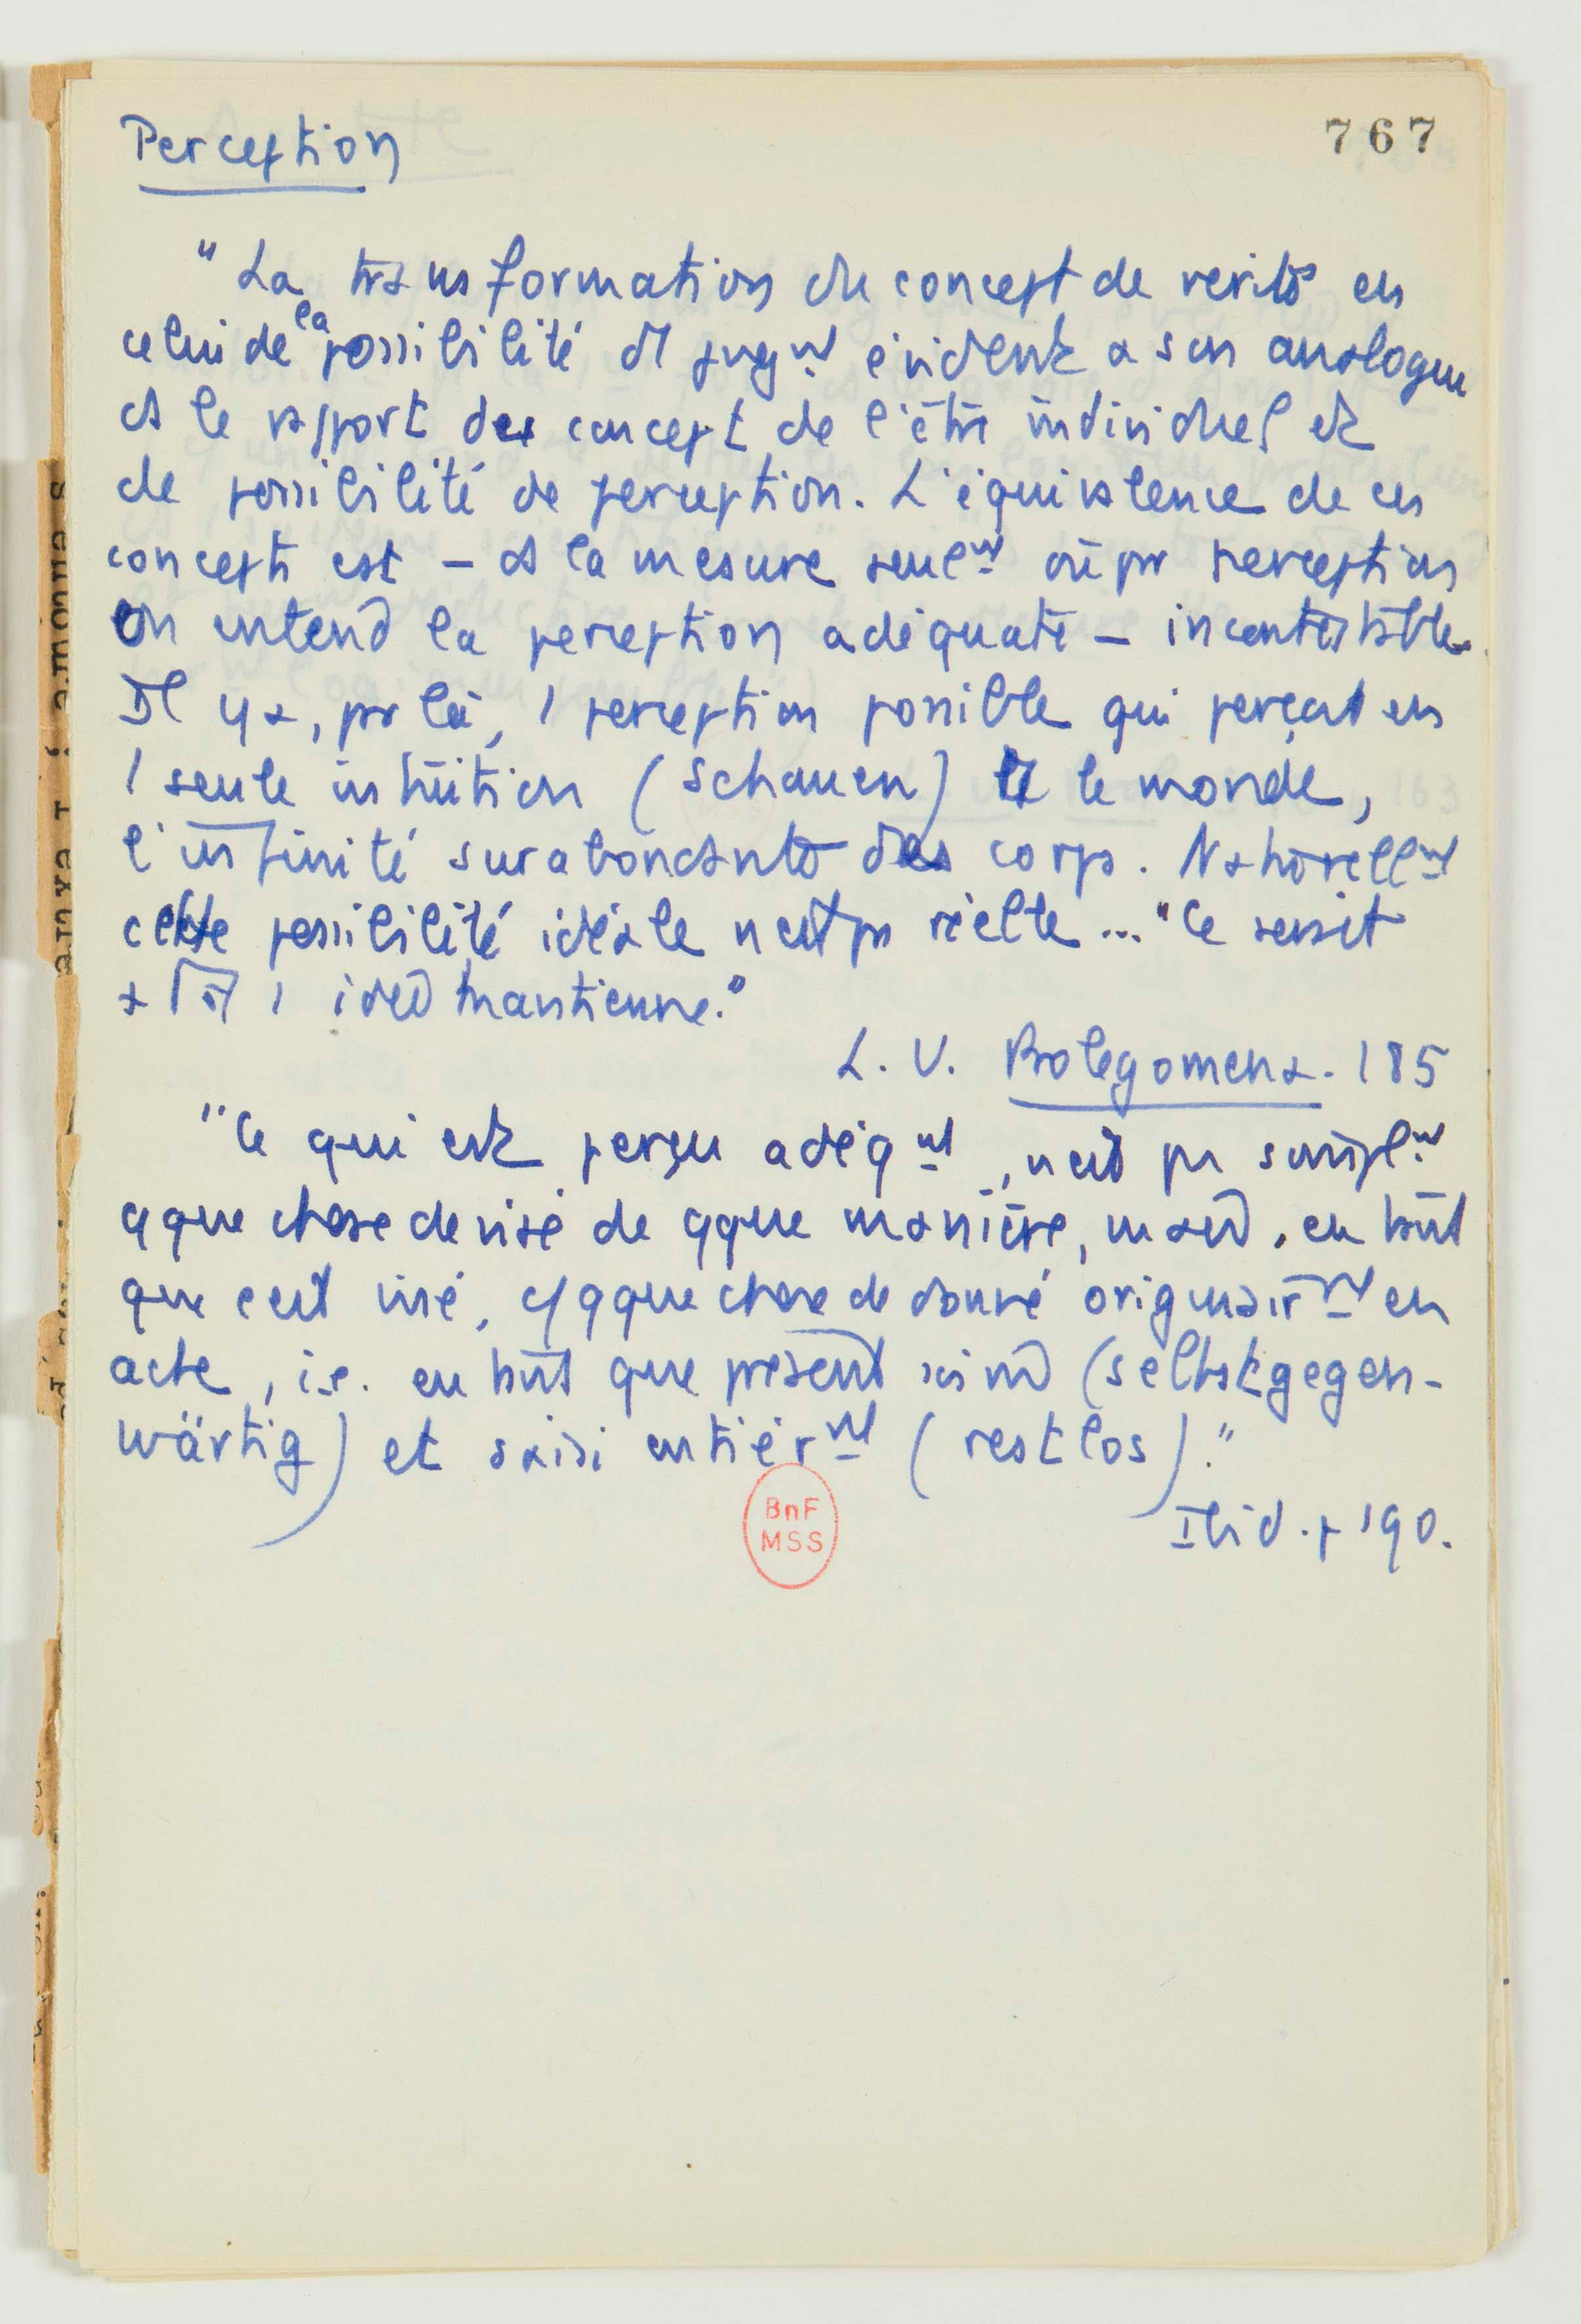 Perception
767
"La transformation du concept de vérité en
celui de la possibilité de jugnt évident a son analogue
ds le rapport des concept de l'être individuel et
de possibilité de perception. L'équivalence de ces
concepts est - ds la mesure seulnt où pr perception
on entend la perception adéquate - incontestable.
Il y a, pr là, 1 perception possible qui perçoit en
1 seule intuition (Schauen) tt le monde,
l'infinité surabondante des corps. Naturellnt
cette possibilité idéale n'est pas réelle ... "Ce serait
1 idée kantienne."
L. U. Prolegomena. 185
"Ce qui est perçu adéqnt, n'est pas simplnt
qque chose de visé de qque manière, mais, en tant
que c'est visé, qque chose de donné originairnt en
acte, i.e. en tant que présent (selbstgegen-
wärtig) et saisi entièrnt (restlos)."
Ibid. p 190.
BnF
MSS